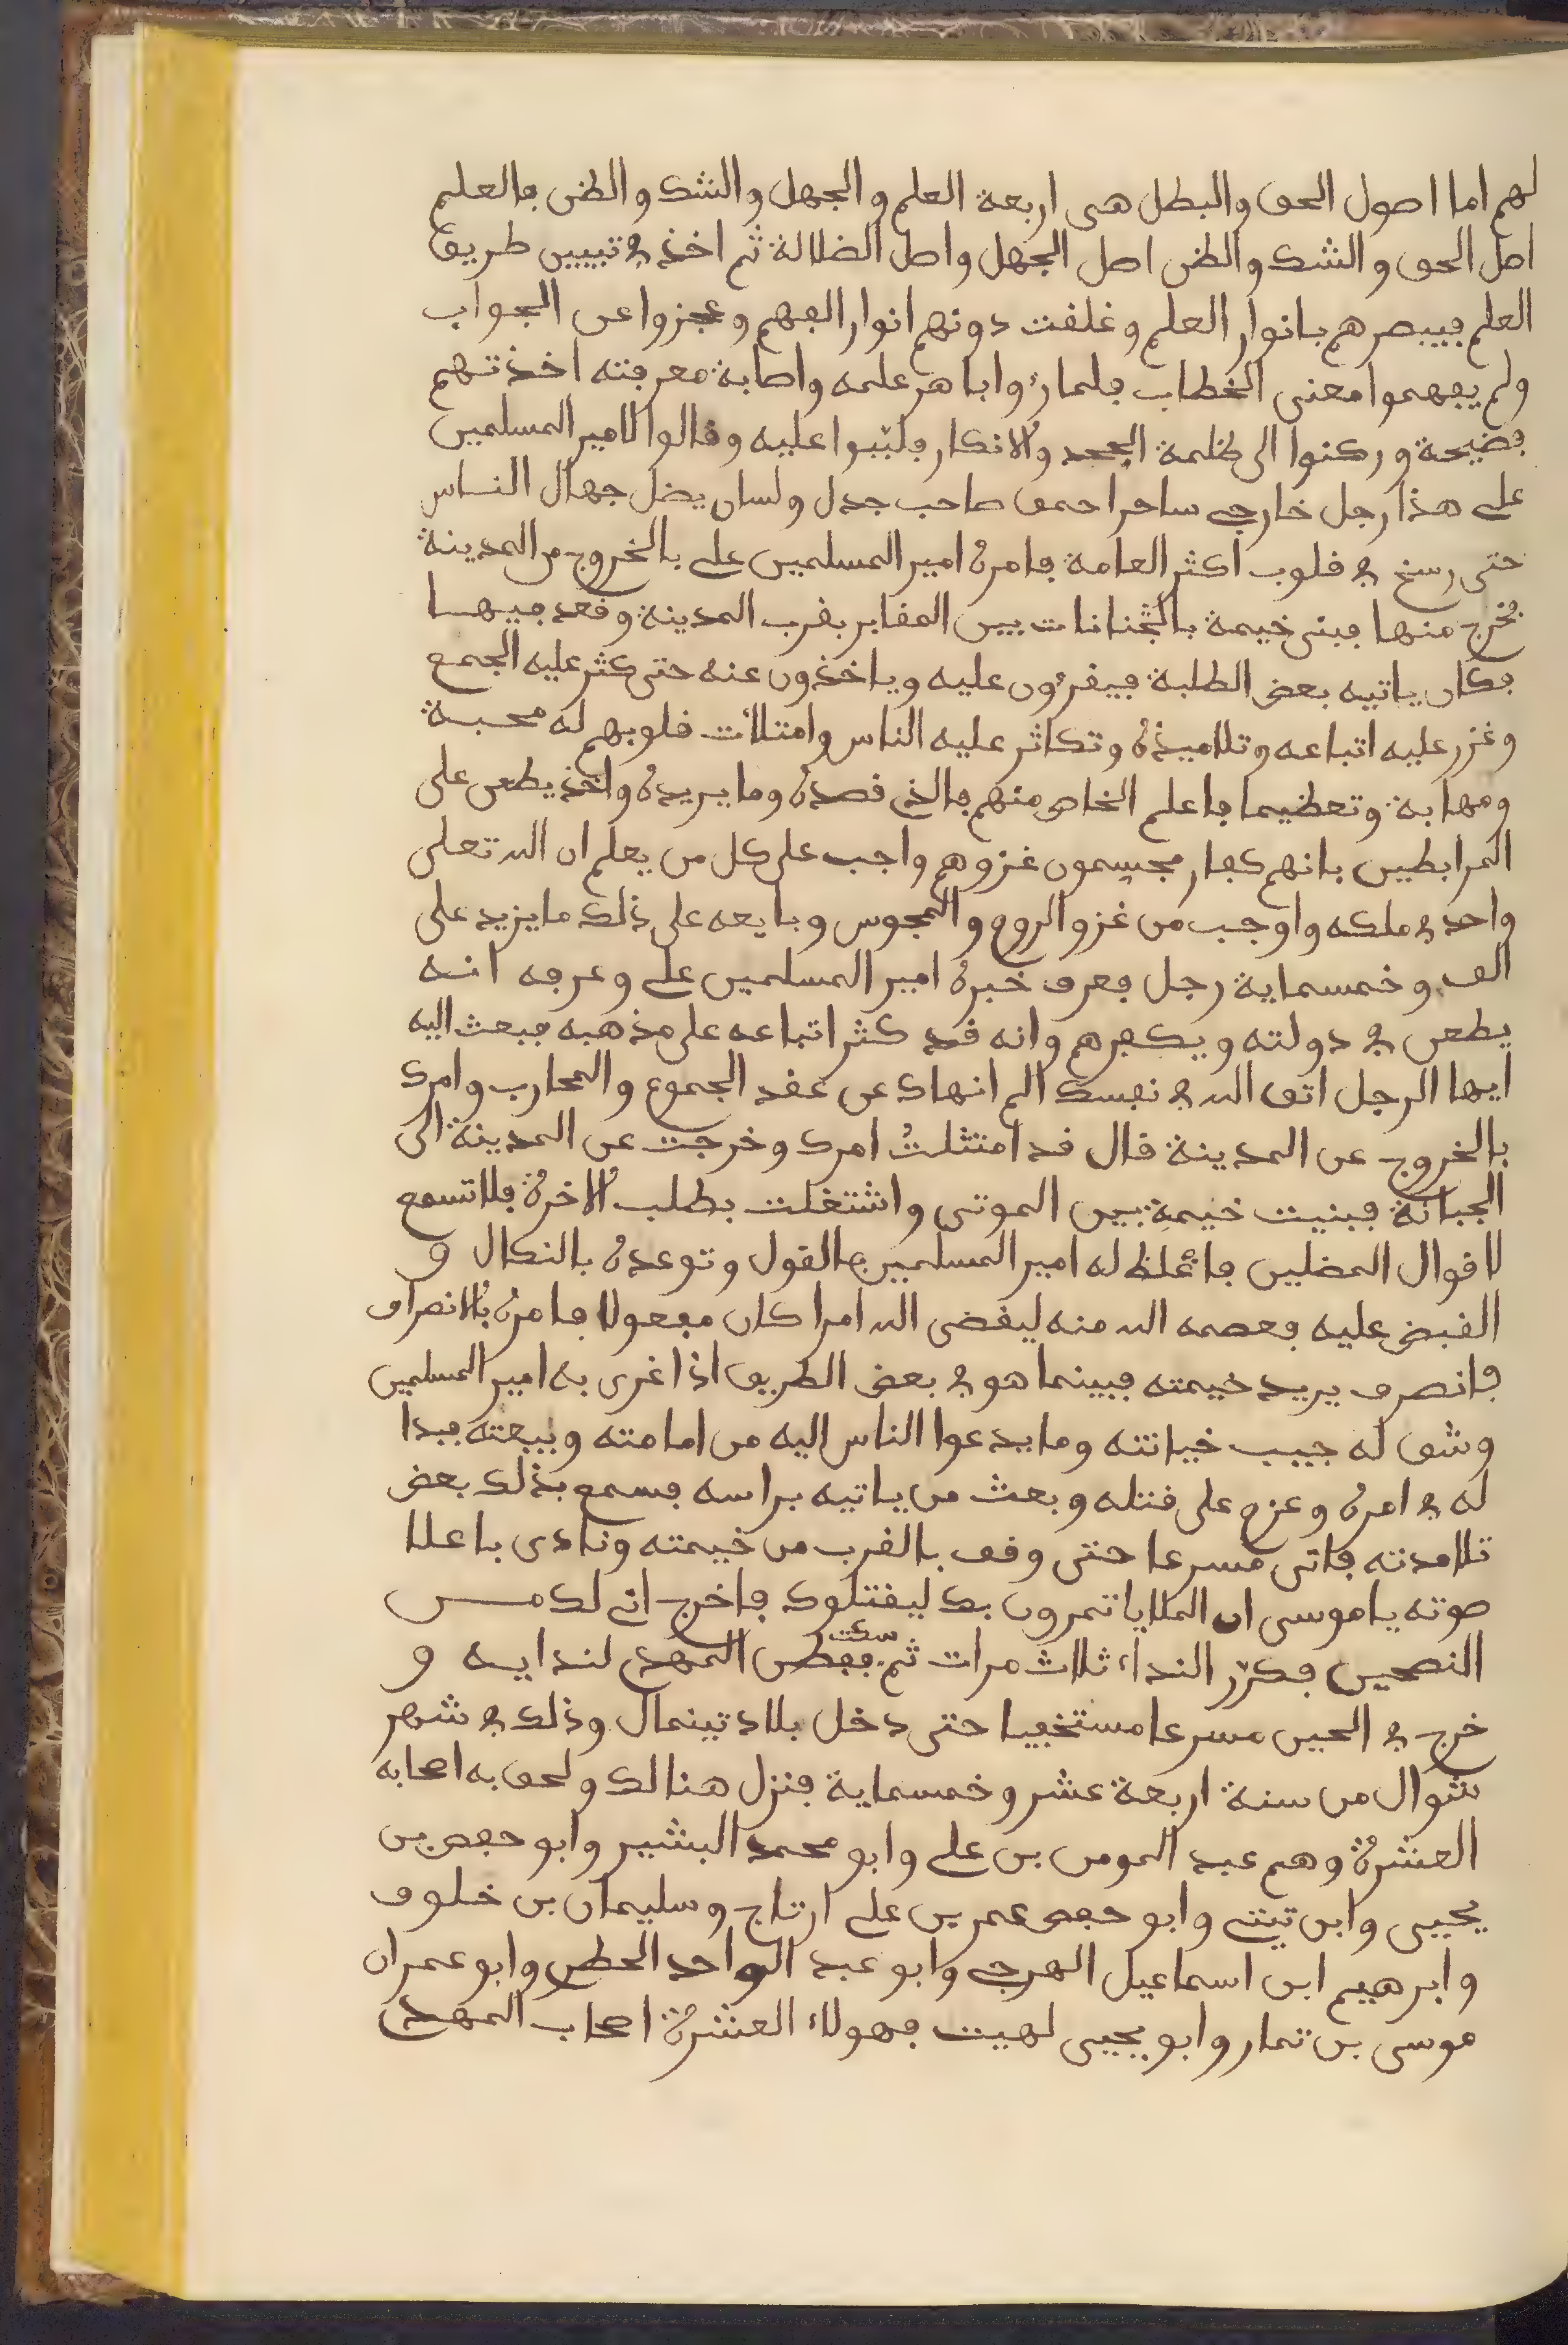 لهم اما اصول الحق والبطل هى اربعة العلم والجهل والشك والظن فالعلم
اصل الحق والشك والظن اصل الجهل واصل الضلالة ثم اخذ في تبيين طريق
العلم فيبصرهم بانوار العلم وغلقت دونهم انوار الفهم وعجزوا عن الجواب
ولم يفهموا معنى الخطاب فلما رءوا باهر علمه واصابة معرفته اخذتهم
فضيحة وركنوا الى ظلمة الجحد والانكار فلبّبوا عليه وقالوا لامير المسلمين
علي هذا رجل خارجي ساحرا حمق صاحب جدل ولسان يضل جهال الناس
حتى رسخ في قلوب اكثر العامة فامره امير المسلمين علي بالخروج من المدينة
فخرج منها فبنى خيمة بالجنانات بين المقابر بقرب المدينة وقعد فيها
فكان ياتيه بعض الطلبة فيقرءون عليه وياخذون عنه حتى كثر عليه الجمع
وغزر عليه اتباعه وتلاميذه وتكاثر عليه الناس وامتلأت قلوبهم له محبة
ومهابة وتعظيما فاعلم الخاص منهم بالذي قصده وما يريده واخذ يطعن على
المرابطين بانهم كفار مجسمون غزوهم واجب على كل من يعلم ان الله تعلى
واحد في ملكه واوجب من غزو الروم والمجوس وبايعه على ذلك ما يزيد على
الف وخمسماية رجل فعرف خبره امير المسلمين علي وعرفه انه
يطعن في دولته ويكفرهم وانه قد كثر اتباعه على مذهبه فبعث اليه
ايها الرجل اتق الله في نفسك الم انهاك عن عقد الجموع والمحارب وامرك
بالخروج عن المدينة قال قد امتثلتُ امرك وخرجت عن المدينة الى
الجبانة فبنيت خيمة بين الموتى واشتغلت بطلب الاخرة فلا تسمع
لاقوال المضلين فاغلظ له امير المسلمين بالقول وتوعده بالنكال و
القبض عليه فعصمه الله منه ليقضى الله امرا كان مفعولا فامره بالانصراف
فانصرف يريد خيمته فبينما هو في بعض الطريق اذا غرى به امير المسلمين
وشق له جيب خيانته وما يدعوا الناس اليه من امامته وبيعته فبدا
له في امره وعزم على قتله وبعث من ياتيه براسه فسمع بذلك بعض
تلامدته فاتى مسرعا حتى وقف بالقرب من خيمته ونادى باعلا
صوته ياموسى ان الملا ياتمرون بك ليقتلوك فاخرج اني لك مـــن
النصحين فكرّر النداء ثلاث مرات ثم سكت ففطن المهدي لندايه و
خرج في الحين مسرعا مستخفيا حتى دخل بلاد تينمال وذلك في شهر
شوال من سنة اربعة عشر وخمسماية فنزل هنالك ولحق به اصحابه
العشرة وهم عبد المومن بن علي وابو محمد البشير وابو حفص بن
يحيى وابن تيتي وابو حفص عمر بن علي ارتاج وسليمان بن خلوف
وابرهيم ابن اسماعيل الهرجي وابو عبد الواحد الحطمي وابو عمران
موسى بن تمار وابو يحيى لهيت فهولاء العشرة اصحاب المهدي